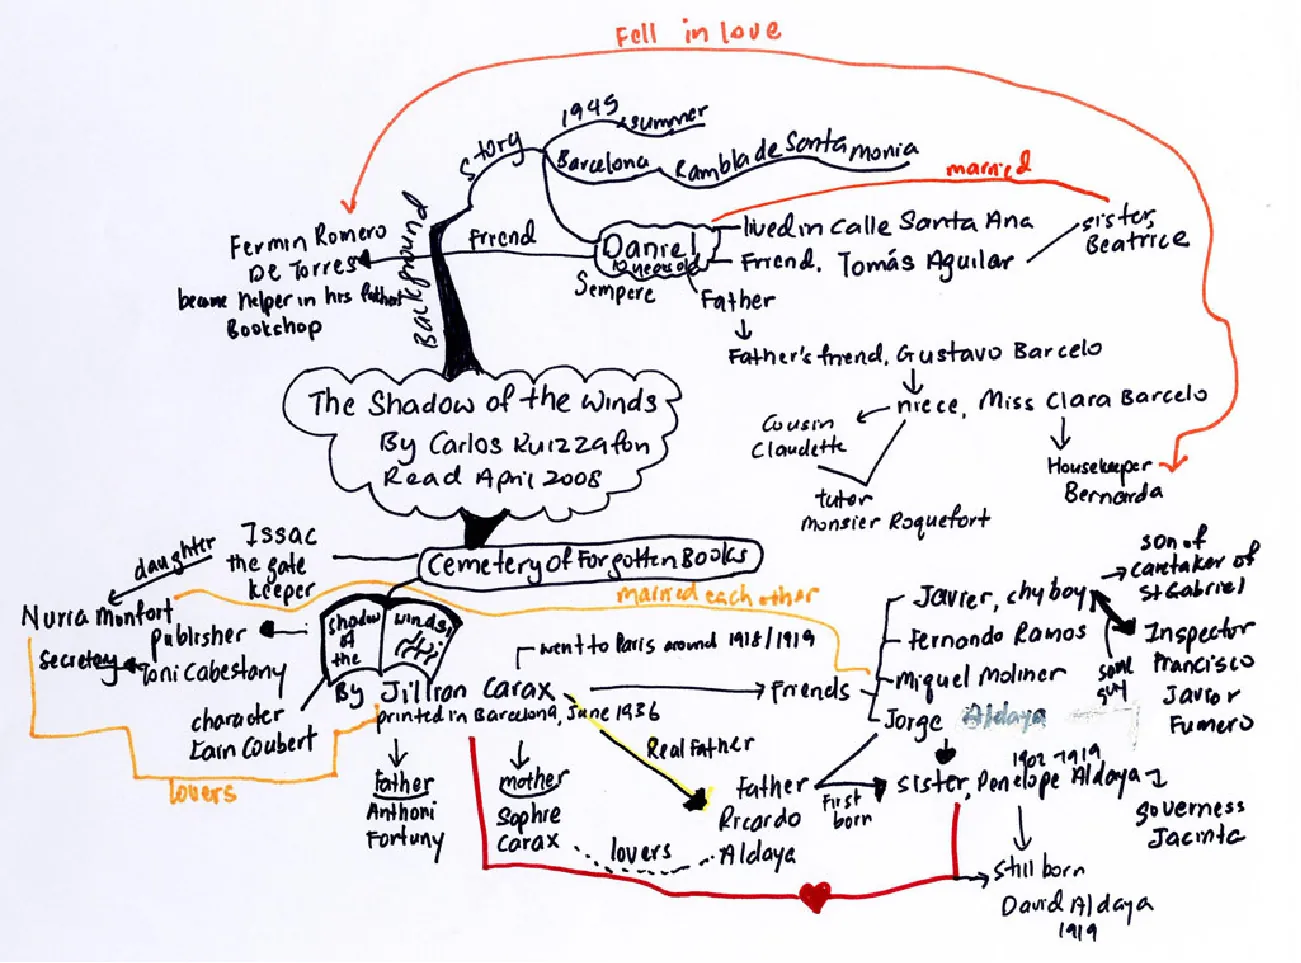 Fell in love
1945 summer
Story
Barcelona Rambla de Santa monia
married
Background
Fermin Romero
De Torres
became helper in his father
Bookshop
friend
Daniel
Sempere
lived in Calle Santa Ana
Friend, Tomás Aguilar
sister,
Beatrice
Father
Father's friend, Gustavo Barcelo
niece, Miss Clara Barcelo
Cousin
Claudette
tutor
Monsier Roquefort
Housekeeper
Bernarda
The Shadow of the Winds
By Carlos Ruizzafon
Read April 2008
Cemetery of Forgotten Books
Issac
the gate
keeper
daughter
Nuria Monfort
publisher
Secretary Toni Cabestany
Shadow
of
the
winds
By Jillian Carax
printed in Barcelona, June 1936
character
Lain Coubert
lovers
married each other
went to Paris around 1918/1919
Friends
Javier, chy boy
son of
caretaker of
St Gabriel
Fernando Ramos
Miquel Moliner
Jorge Aldaya
same
guy
Inspector
Francisco
Javior
Fumero
Father
Anthoni
Fortuny
mother
Sophie
Carax
Real Father
lovers
Father
Ricardo
Aldaya
First
born
1902-1919
sister, Penelope Aldaya
Governess
Jacinta
still born
David Aldaya
1919